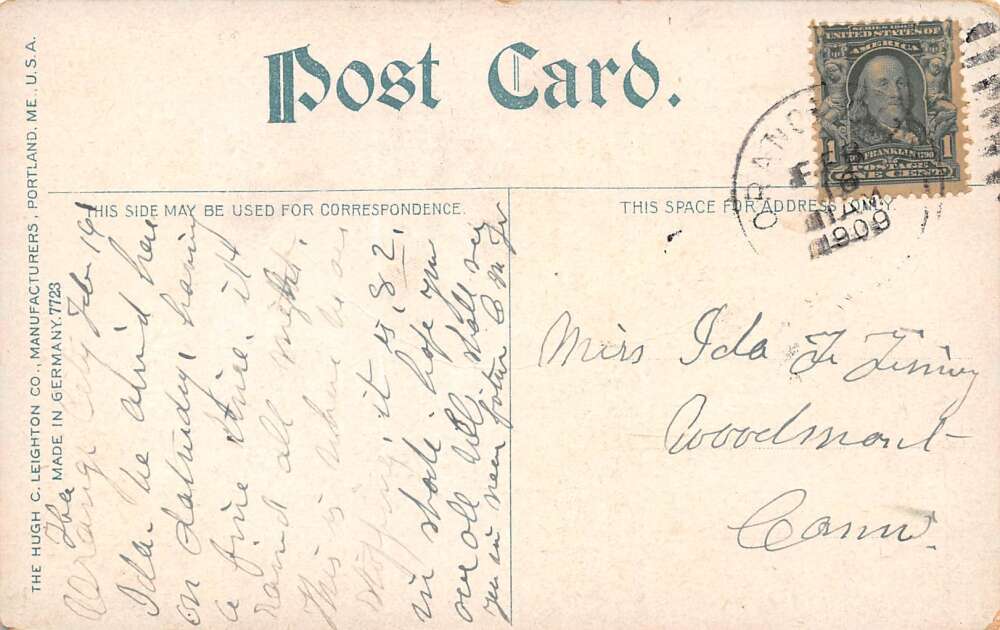 Post Card.
SERIES 1902
UNITED STATES OF
AMERICA
1 FRANKLIN 1790 1
POSTAGE
ONE CENT
ORANG
FEB
16
AM
1909
THIS SIDE MAY BE USED FOR CORRESPONDENCE.
THIS SPACE FOR ADDRESS ONLY.
THE HUGH C. LEIGHTON CO., MANUFACTURERS, PORTLAND, ME., U.S.A.
MADE IN GERMANY. 7723
Orange City Feb 16
Ida. We arrived here
on Saturday, having
a fine time. it
raind all night.
This is where we are
stopping, it is 82.
in shade. hope you
are all well, shall see
you in near future C M F
Miss Ida F
Woodmont
Conn.